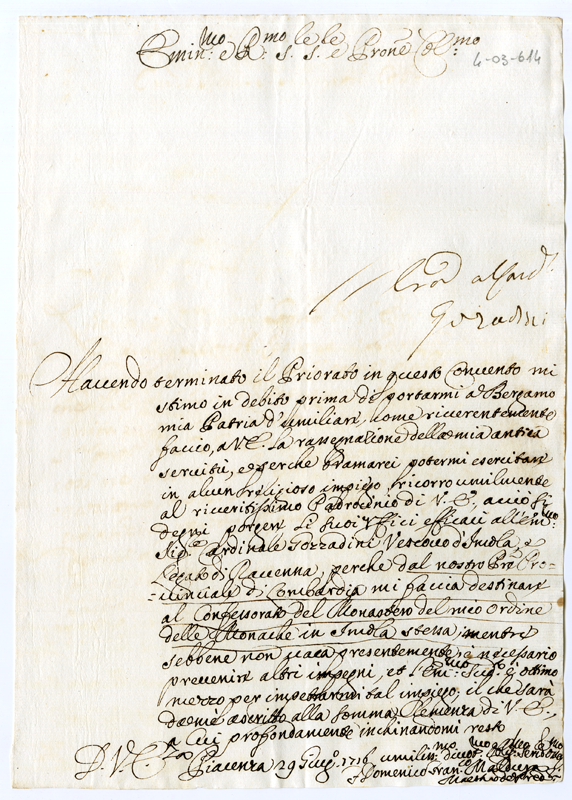 Emin.mo e R.mo S.re S.re e Prone Col.mo
4-03-614
al Card.
Gozadini
Havendo terminato il Priorato in questo Convento mi
stimo in debito prima di portarmi à Bergamo
mia Patria d'umiliare, come riverentemente
faccio, a V.E. la rassegnazione della mia antica
servitù, e perche bramarei potermi esercitare
in alcun religioso impiego ricorro umilmente
al riveritissimo Padrocinio di V.E. acciò si
degni porgere li suoi Uffici efficaci all'Emin.mo
Sig.re Cardinale Gozzadini Vescovo d'Imola, e
Legato di Ravenna, perche dal nostro Pro Pro-
-vinciale di Lombardia mi faccia destinare
al Confessorato del Monastero del mio Ordine
delle Monache in Imola stessa, mentre
sebbene non vaca presentemente, è necessario
prevenire altri impegni, et l'Emin.mo Sig.re è ottimo
mezzo per impetrarmi tal impiego, il che sarà
da me ascritto alla somma Clemenza di V.E.,
a cui profondamente inchinandomi resto
D. V. E.za
Piacenza 29 Giug.o 1716 umilis.mo
F. Domenico Fran.co